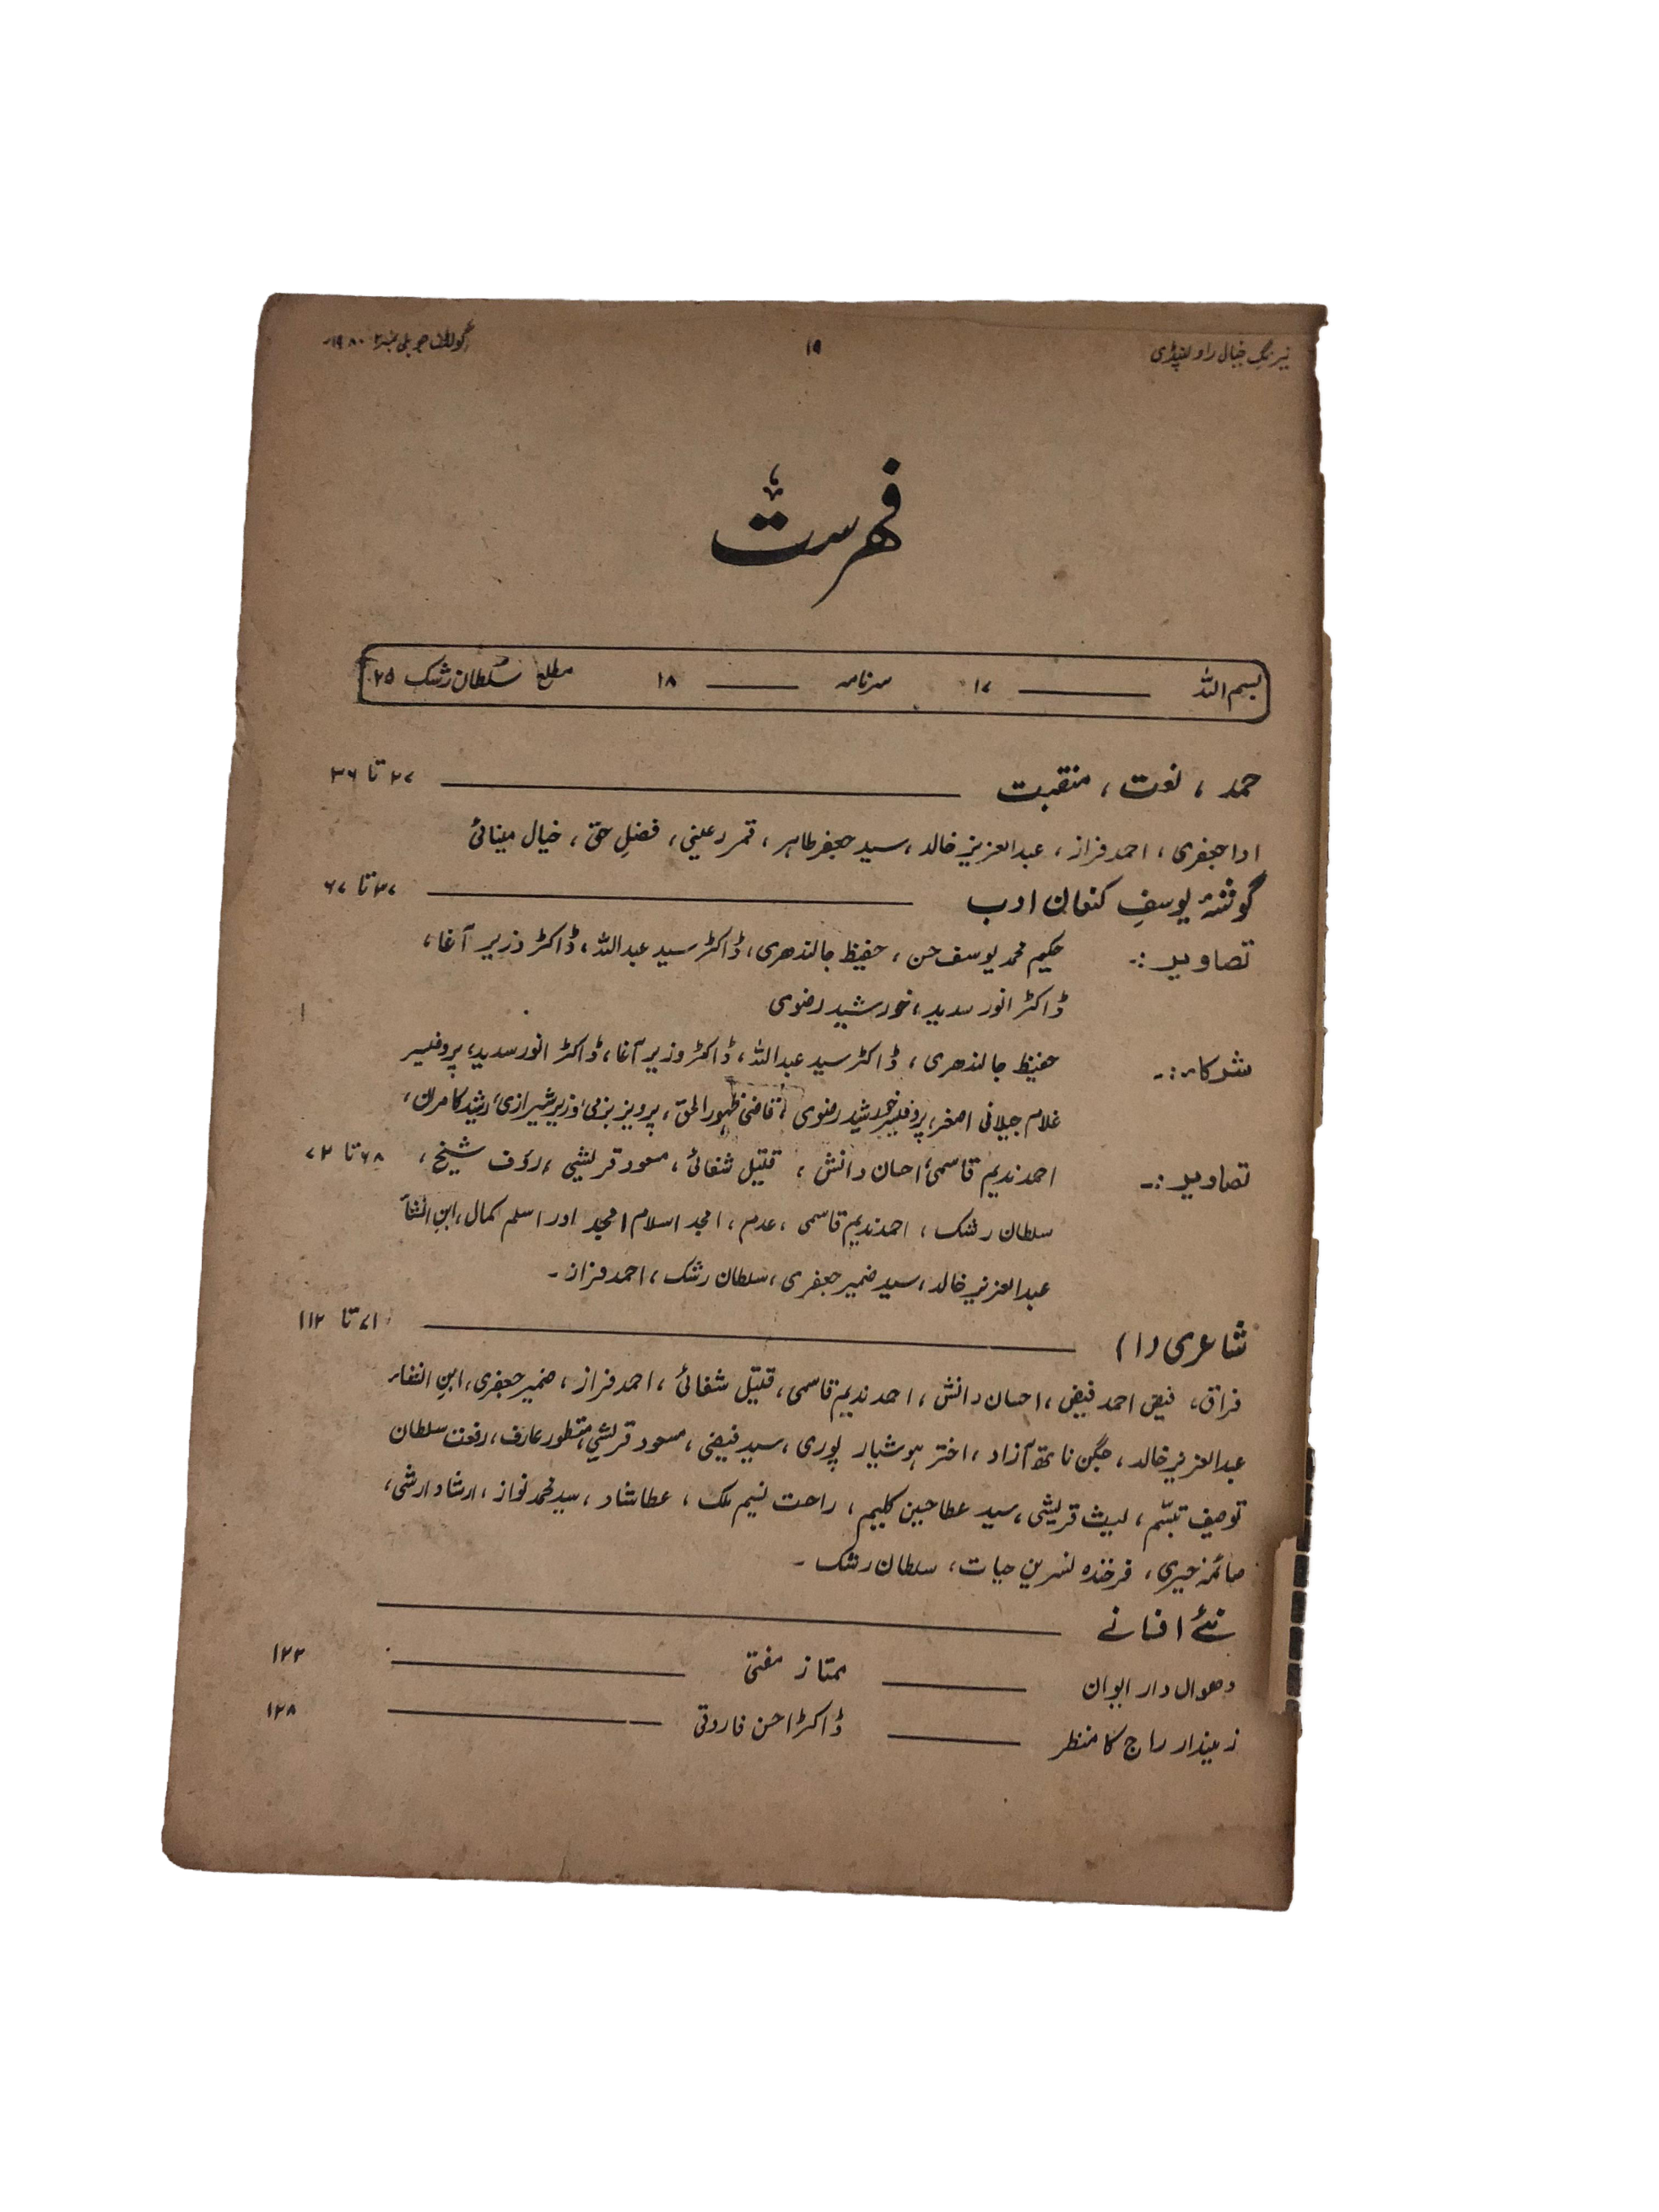 نیرنگِ خیال راولپنڈی ۱۹ گولڈن جوبلی نمبر ۱۹۸۰ء
فہرست
بسم اللہ ۱۷ سرنامہ ۱۸ مطلع سُلطان رشک ۲۵
حمد ، نعت ، منقبت ۲۷ تا ۳۶
ادا جعفری ، احمد فراز ، عبدالعزیز خالد ، سید جعفر طاہر ، قمر رعینی ، فضلِ حق ، خیال مینائی
گوشۂ یوسفِ کنعان ادب ۳۷ تا ۶۷
تصاویر :۔ حکیم محمد یوسف حسن ، حفیظ جالندھری ، ڈاکٹر سید عبداللہ ، ڈاکٹر وزیر آغا ،
ڈاکٹر انور سدید ، خورشید رضوی
شرکاء :۔ حفیظ جالندھری ، ڈاکٹر سید عبداللہ ، ڈاکٹر وزیر آغا ، ڈاکٹر انور سدید ، پروفیسر
غلام جیلانی اصغر ، پروفیسر خورشید رضوی ، قاضی ظہور الحق ، پرویز بزمی ، وزیر شیرازی ، رشید کامران ،
تصاویر :۔ احمد ندیم قاسمی ، احسان دانش ، قتیل شفائی ، مسعود قریشی ، رؤف شیخ ، ۶۸ تا ۷۲
سلطان رشک ، احمد ندیم قاسمی ، عدم ، امجد اسلام امجد اور اسلم کمال ، ابنِ انشاء
عبدالعزیز خالد ، سید ضمیر جعفری ، سلطان رشک ، احمد فراز ۔
شاعری (۱) ۷۱ تا ۱۱۲
فراق ، فیض احمد فیض ، احسان دانش ، احمد ندیم قاسمی ، قتیل شفائی ، احمد فراز ، ضمیر جعفری ، ابنِ انشاء
عبدالعزیز خالد ، جگن ناتھ آزاد ، اختر ہوشیار پوری ، سید فیضی ، مسعود قریشی ، منظور عارف ، رفعت سلطان
توصیف تبسّم ، لیث قریشی ، سید عطا حسین کلیم ، راحت نسیم ملک ، عطا شاد ، سید محمد نواز ، ارشاد ارشی ،
صائمہ خیری ، فرخندہ نسرین حیات ، سلطان رشک ۔
نئے افسانے
دھواں دار ایوان ممتاز مفتی ۱۲۲
زمیندار راج کا منظر ڈاکٹر احسن فاروقی ۱۲۸